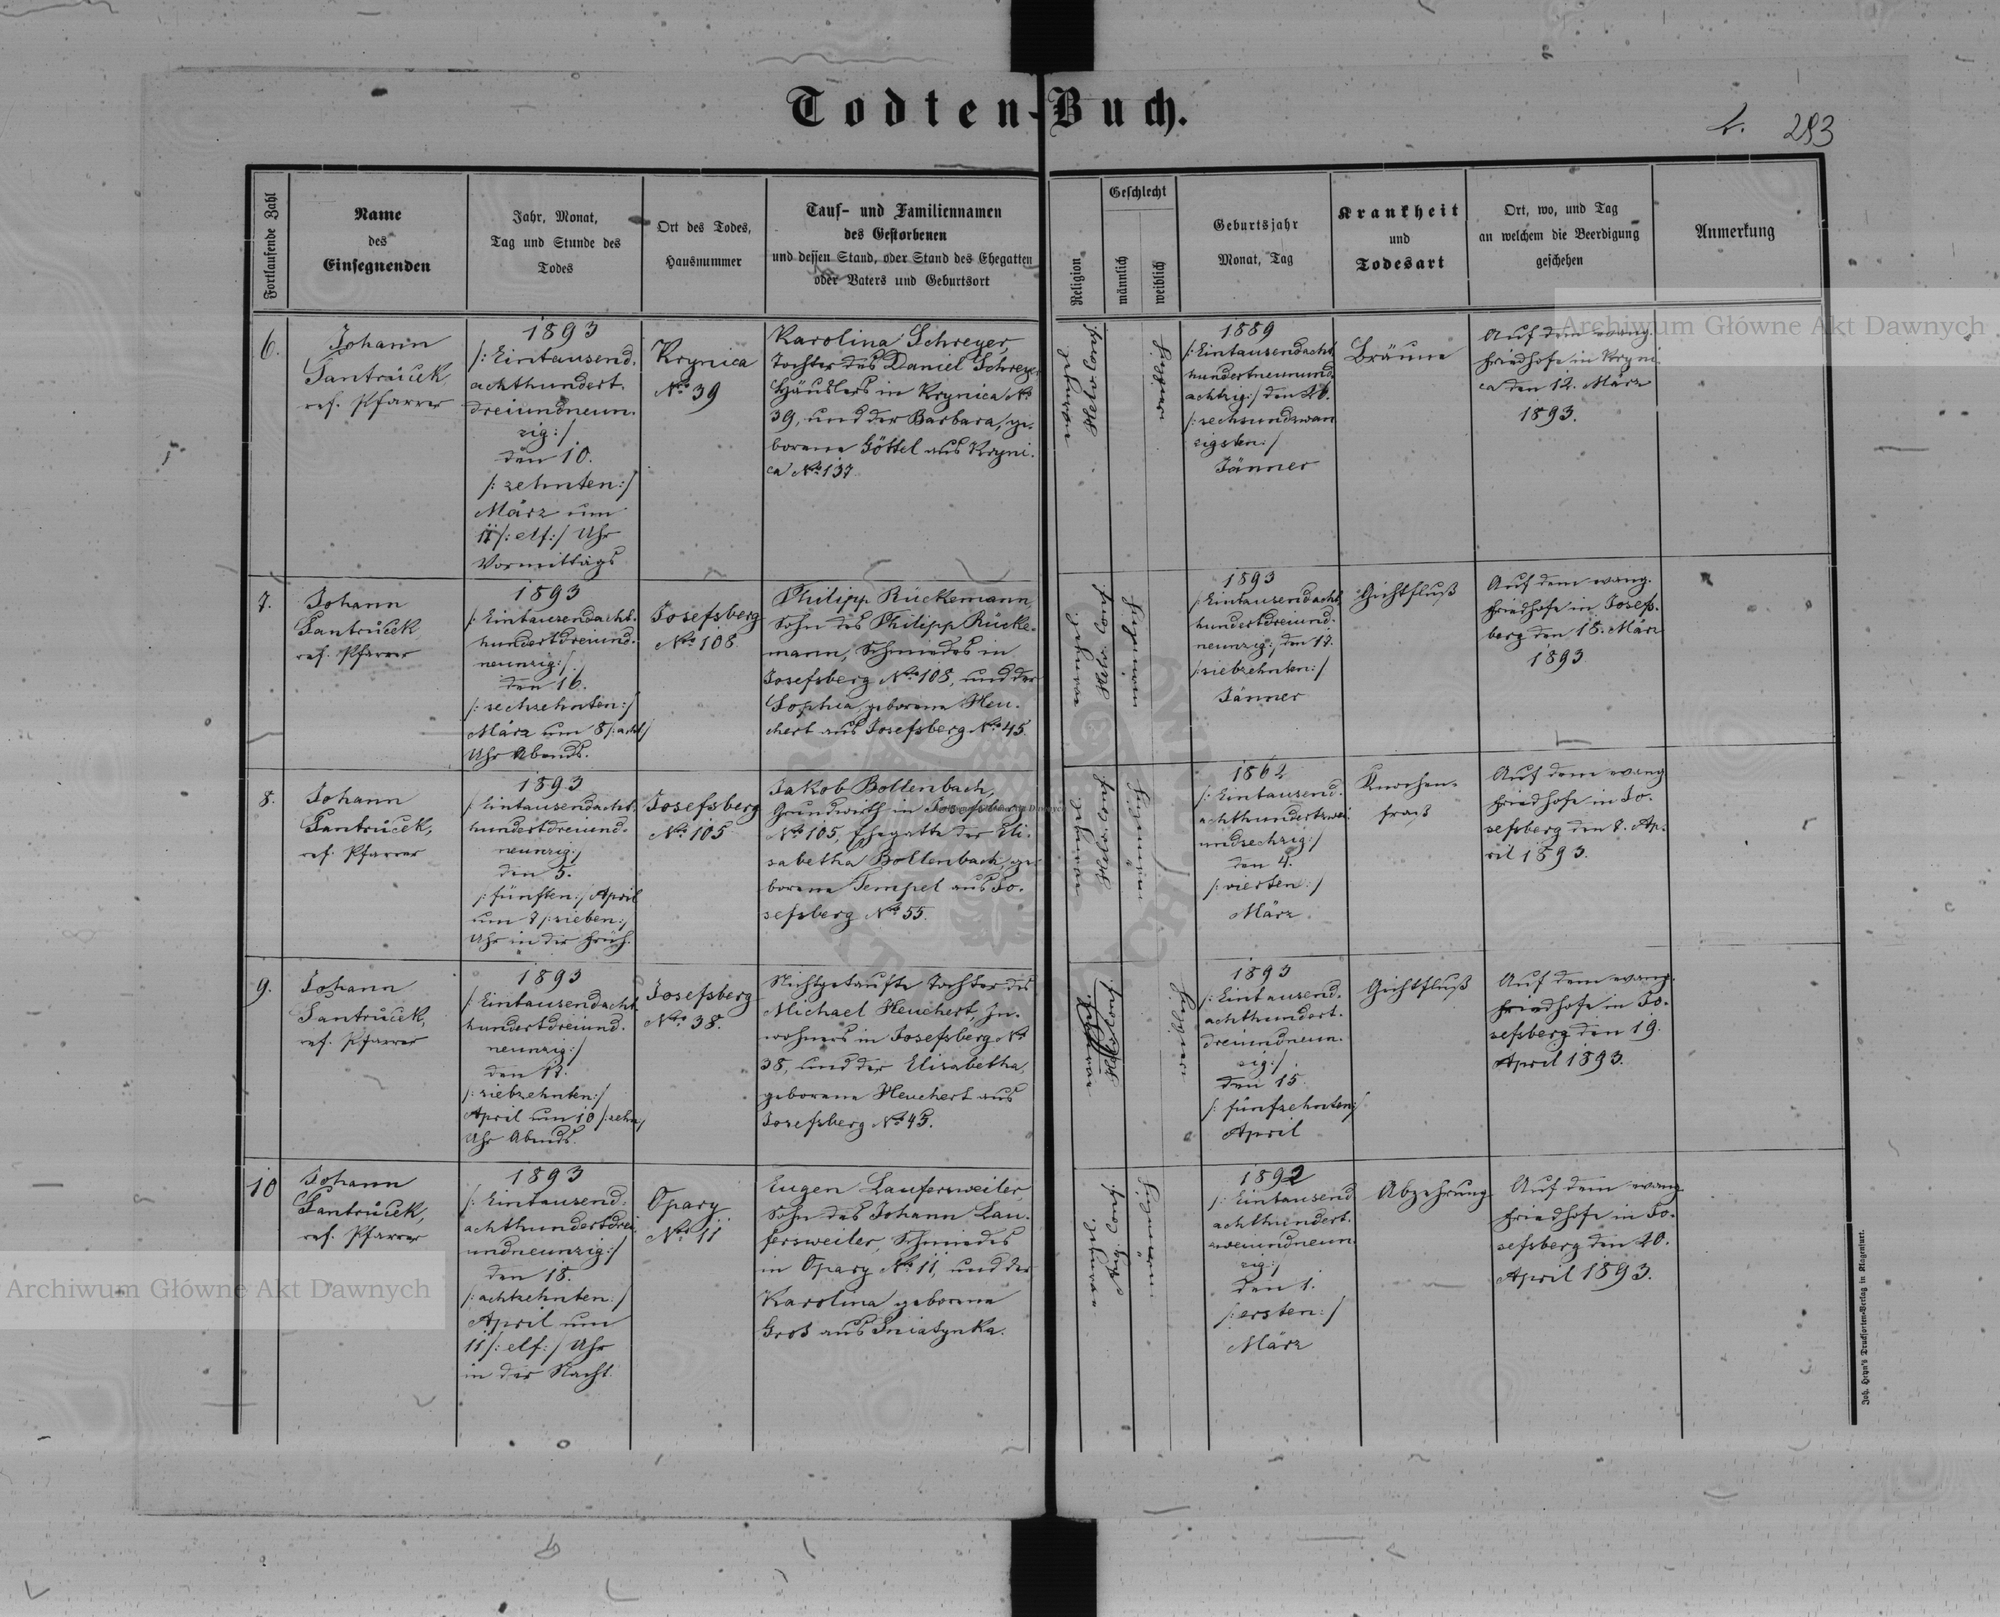 Todten-Buch.
293
Fortlaufende Zahl
Name
des
Einsegnenden
Jahr, Monat,
Tag und Stunde des
Todes
Ort des Todes,
Hausnummer
Tauf- und Familiennamen
des Gestorbenen
und dessen Stand, oder Stand des Ehegatten
oder Vaters und Geburtsort
Religion
Geschlecht
männlich
weiblich
Geburtsjahr
Monat, Tag
Krankheit
und
Todesart
Ort, wo, und Tag
an welchem die Beerdigung
geschehen
Anmerkung
6.
Johann
Jantrůcek
ref. Pfarrer
1893
/: Eintausend.
achthundert.
dreiundneun.
zig :/
den 10.
/: zehnten :/
März um
11 /: elf :/ Uhr
Vormittags
Krynica
No 39
Karolina Schreyer
Tochter des Daniel Schreyer
Häuslers in Krynica No
39, und der Barbara, ge.
borene Göttel aus Kryni.
ca No 137
Helv. Conf.
1889
/: Eintausendacht
hundertneunund.
achtzig :/ den 26.
/: sechsundzwan
zigsten :/
Jänner
Bräune
Auf dem evang.
Friedhofe in Kryni
ca den 12. März
1893.
7.
Johann
Jantrůcek
ref. Pfarrer
1893
/: Eintausendacht.
hundertdreiund.
neunzig :/
den 16.
/: sechzehnten :/
März um 8 /: acht :/
Uhr Abends.
Josefsberg
No 108
Philipp Rückemann,
Sohn des Philipp Rücke.
mann, Schmiedes in
Josefsberg No 108, und der
Sophia geborene Heu.
chert aus Josefsberg No 45
Helv. Conf.
1893
/: Eintausendacht
hundertdreiund.
neunzig :/ den 17.
/: siebzehnten :/
Jänner
Gichtfluß
Auf dem evang.
Friedhofe in Josefs.
berg den 18. März
1893
8.
Johann
Jantrůcek,
ref. Pfarrer
1893
/: Eintausendacht.
hundertdreiund.
neunzig :/
den 5.
/: fünften :/ April
um 7 /: sieben :/
Uhr in der Früh.
Josefsberg
No 105
Jakob Bollenbach,
Grundwirth in Josefsberg
No 105, Ehegatte der Eli.
sabetha Bollenbach, ge.
borene Tempel aus Jo.
sefsberg No 55.
Helv. Conf.
1862
/: Eintausend.
achthundertzwei.
undsechzig :/
den 4.
/: vierten :/
März
Knochen-
fraß
Auf dem evang
Friedhofe in Jo.
sefsberg den 7. Ap.
ril 1893.
9.
Johann
Jantrůcek,
ref. Pfarrer
1893
/: Eintausendacht.
hundertdreiund.
neunzig :/
den 17.
/: siebzehnten :/
April um 10 /: zehn :/
Uhr Abends.
Josefsberg
No 38.
Nichtgetaufte Tochter des
Michael Heuchert, In.
wohners in Josefsberg No
38, und der Elisabetha,
geborene Heuchert aus
Josefsberg No 45.
1893
/: Eintausend.
achthundert.
dreiundneun.
zig :/
den 15
/: fünfzehnten :/
April
Gichtfluß
Auf dem evang.
Friedhofe in Jo.
sefsberg den 19.
April 1893.
10
Johann
Jantrůcek,
ref. Pfarrer
1893
/: Eintausend.
achthundertdrei.
undneunzig :/
den 18.
/: achtzehnten :/
April um
11 /: elf :/ Uhr
in der Nacht.
Opary
No 11
Eugen Laufersweiler,
Sohn des Johann Lau.
fersweiler, Schmiedes
in Opary No 11, und der
Karolina geborene
Gros aus Sniatynka.
Augs. Conf.
1892
/: Eintausend
achthundert.
zweiundneun.
zig :/
den 1.
/: ersten :/
März
Abzehrung
Auf dem evang
Friedhofe in Jo.
sefsberg den 20.
April 1893.
Joh. Heyn's Drucksorten-Verlag in Klagenfurt.
Archiwum Główne Akt Dawnych
Archiwum Główne Akt Dawnych